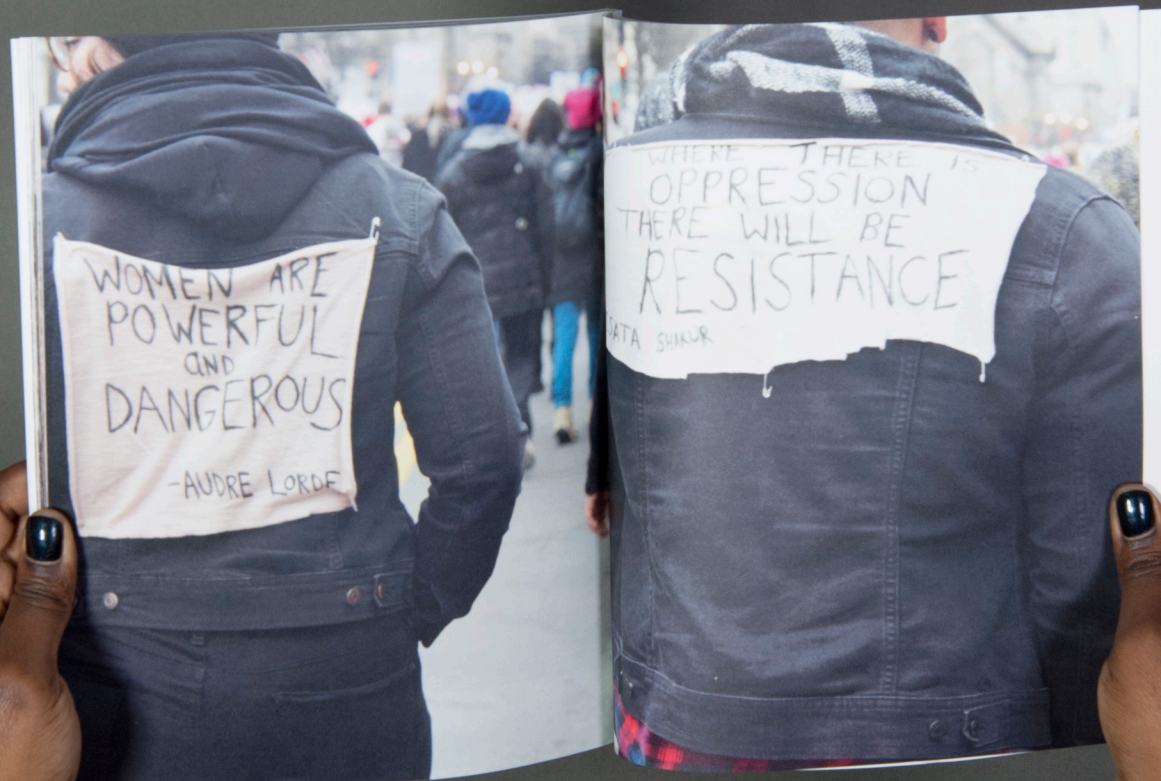 WOMEN ARE
POWERFUL
AND
DANGEROUS
-AUDRE LORDE
WHERE THERE IS
OPPRESSION
THERE WILL BE
RESISTANCE
SATA SHAKUR